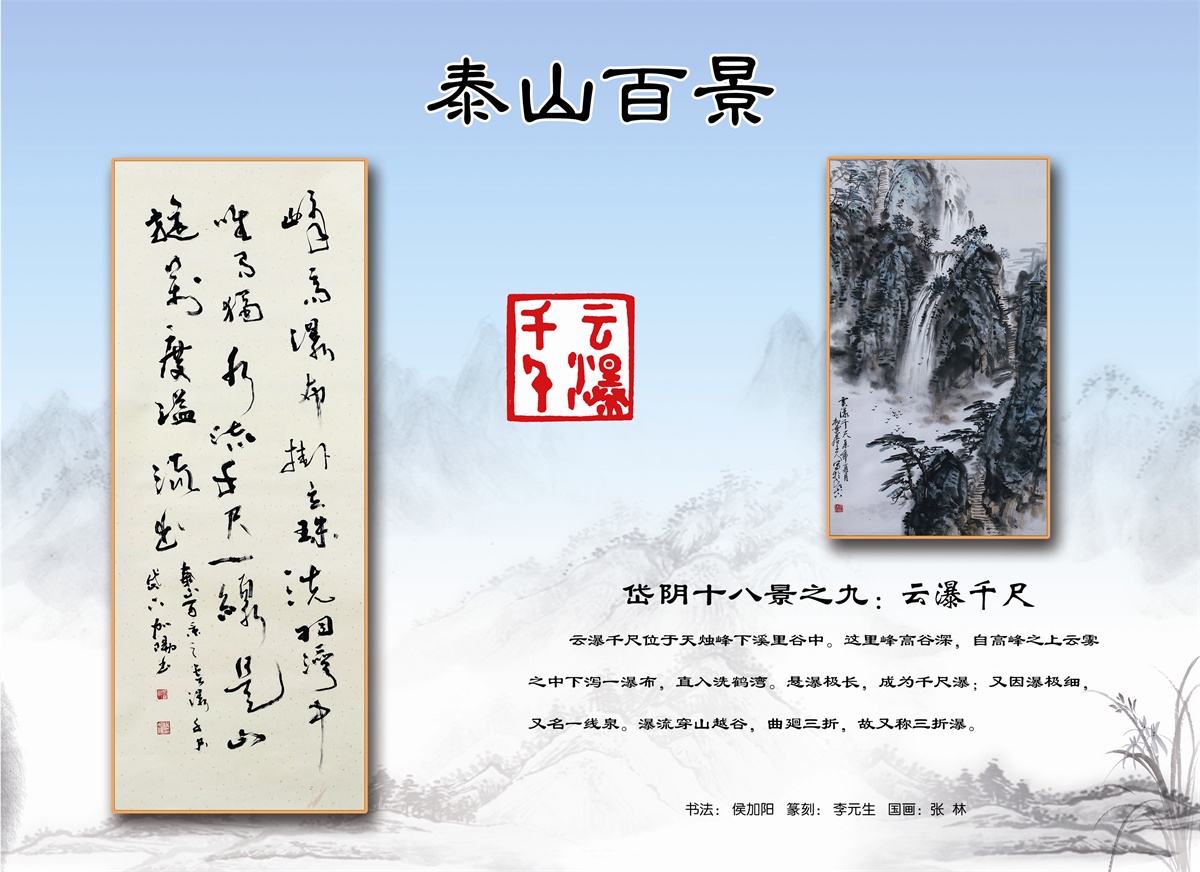 泰山百景
峰高瀑布掛玄珠洗灣中
水流千尺一線是山
萬度溢流出
泰山百景之云瀑千尺
岱下加陽書
云瀑
千尺
云瀑千尺
岱阴十八景之九：云瀑千尺
云瀑千尺位于天烛峰下溪里谷中。这里峰高谷深，自高峰之上云雾
之中下泻一瀑布，直入洗鹤湾。悬瀑极长，成为千尺瀑；又因瀑极细，
又名一线泉。瀑流穿山越谷，曲廻三折，故又称三折瀑。
书法： 侯加阳 篆刻： 李元生 国画：张 林